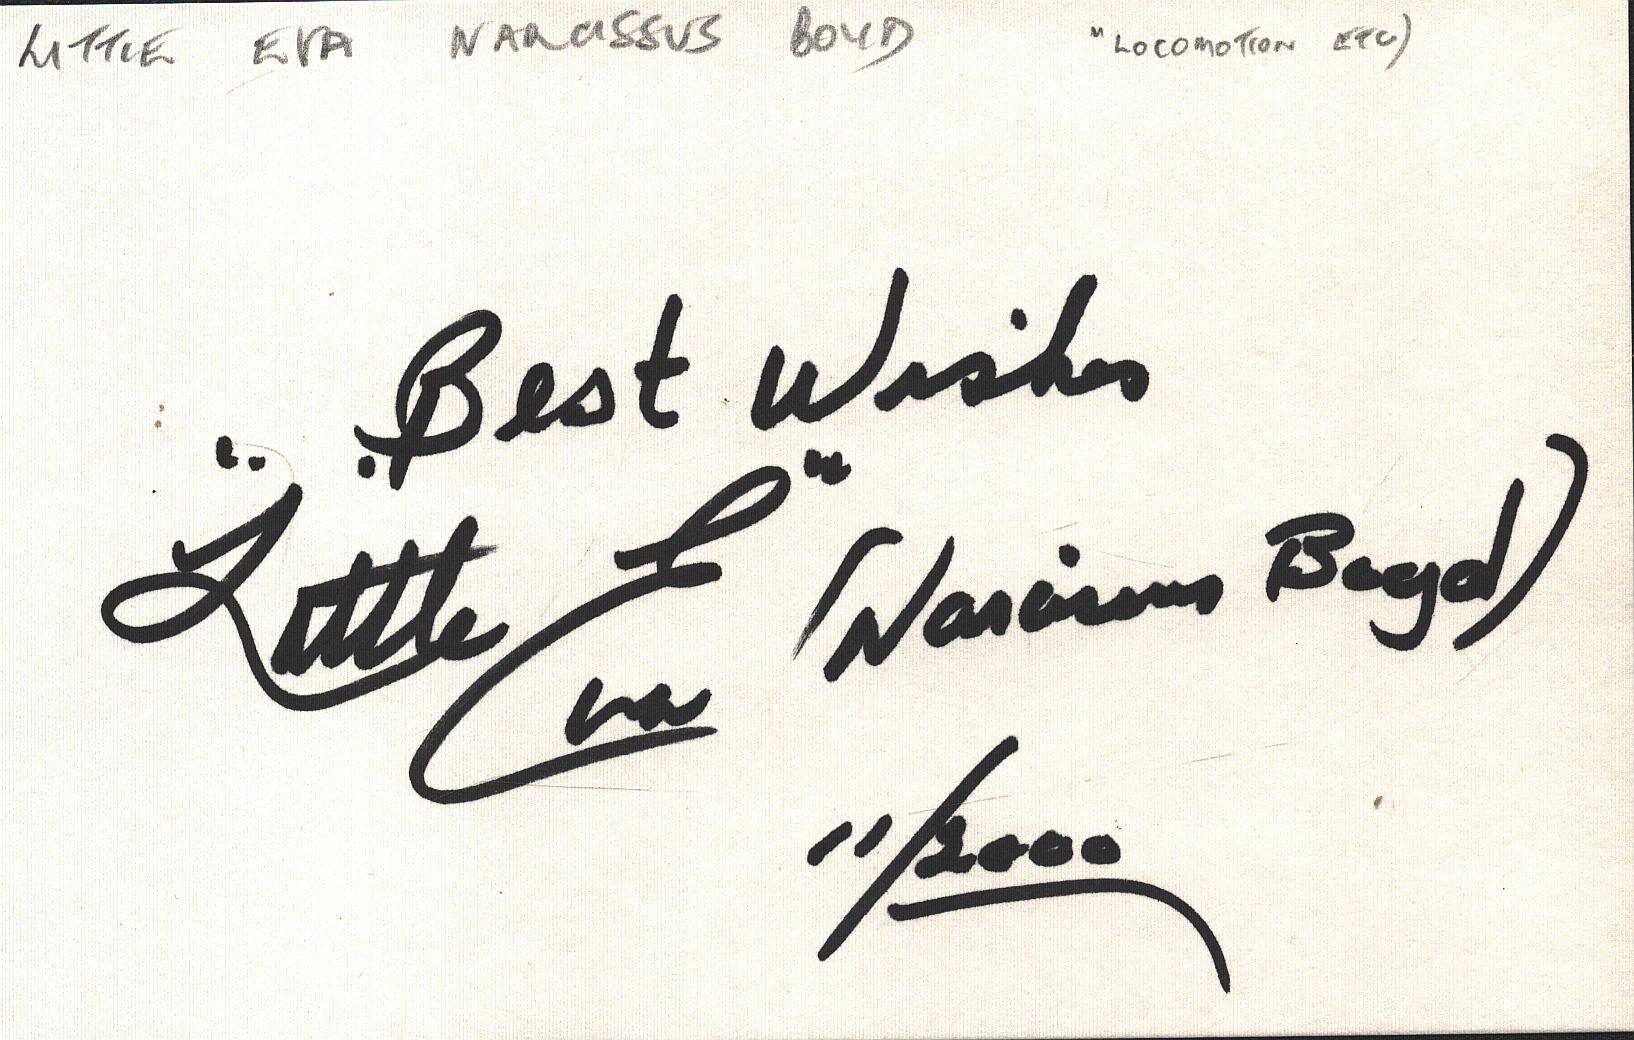 LITTLE EVA NARCISSUS BOYD "LOCOMOTION ETC)
Best Wishes
"Little Eva" (Narcissus Boyd)
11/2000